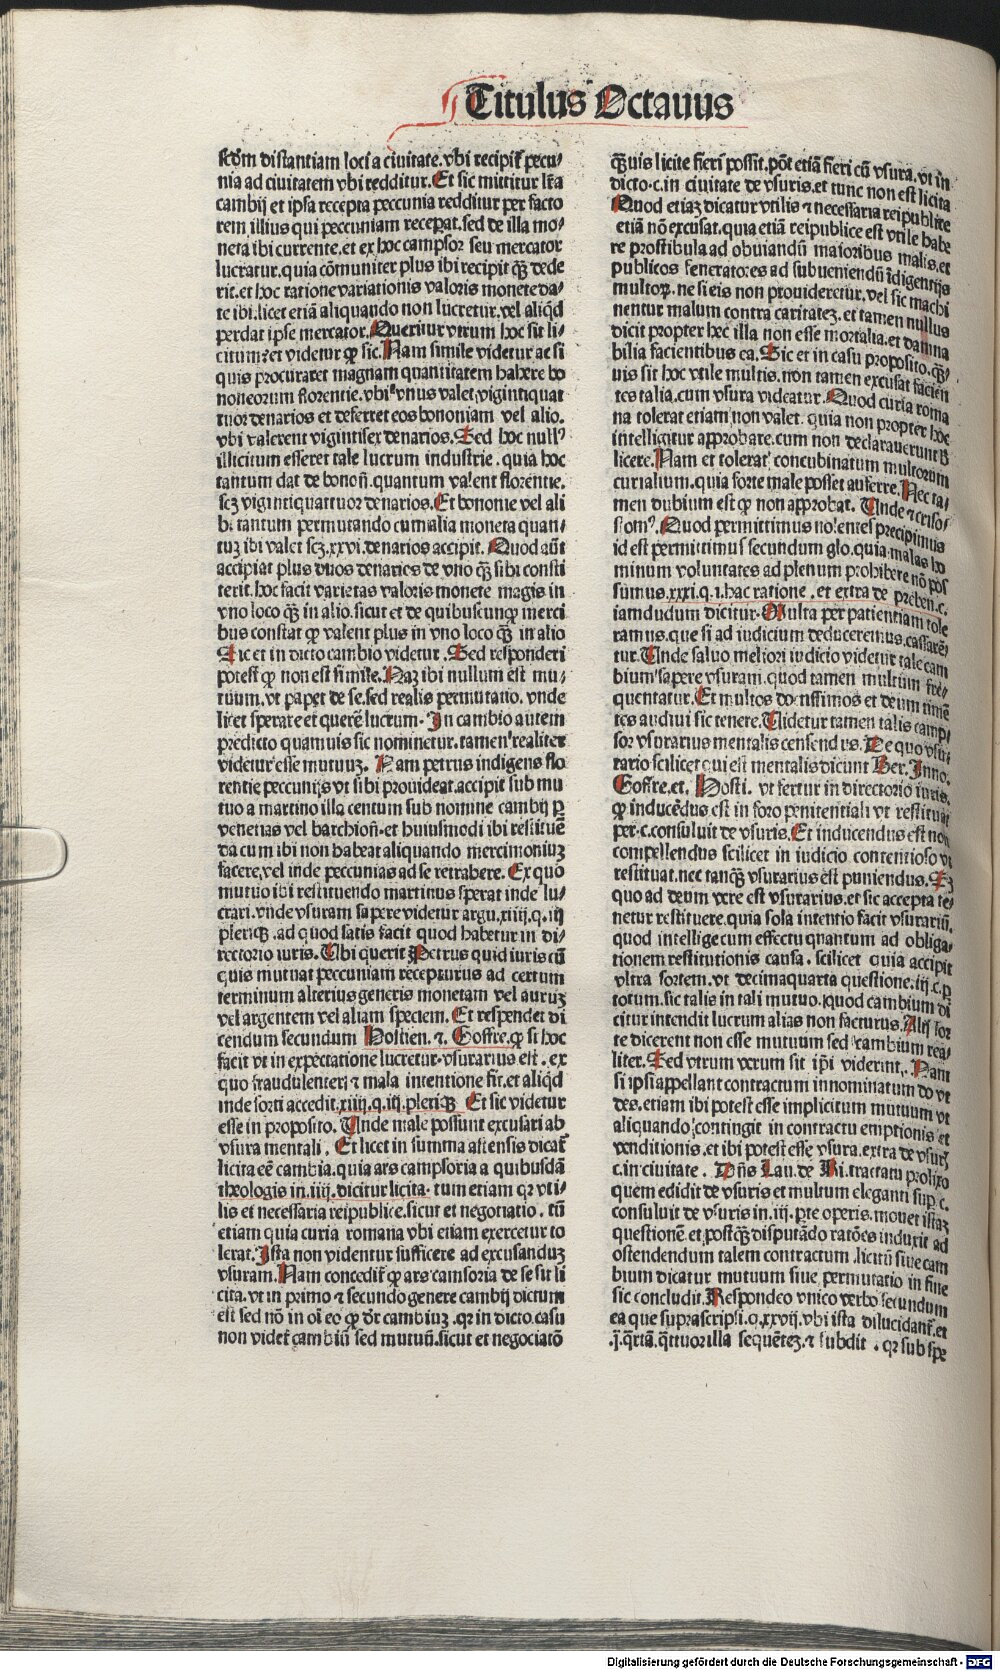 Titulus Octauus
scdm distantiam loci a ciuitate. vbi recipit᷑ pecu-
nia ad ciuitatem vbi redditur. Et sic mittitur lr̄a
cambij et ipsa recepta peccunia redditur per facto
rem illius qui peccuniam recepat. sed de illa mo-
neta ibi currente. et ex hoc campsor seu mercator
lucratur. quia cōmuniter plus ibi recipit qȝ dede
rit. et hoc ratione variationis valoris monete da-
te ibi. licet etiā aliquando non lucretur. vel aliqd
perdat ipse mercator. Queritur vtrum hoc sit li-
citum: et videtur ꝙ sic. Nam simile videtur ac si
quis procuraret magnam quantitatem habere bo
noneorum florentie. vbi vnus valet vigintiquat
tuor denarios et deferret eos bononiam vel alio.
vbi valerent vigintisex denarios. Sed hoc nullꝰ
illicitum esseret tale lucrum industrie. quia hoc
tantum dat de bonoñ. quantum valent florentie.
scȝ vigintiquattuor denarios. Et bononie vel ali
bi tantum permutando cum alia moneta quan-
tuȝ ibi valet scȝ. xxvi. denarios accipit. Quod aūt
accipiat plus duos denarios de vno qȝ sibi consti
terit. hoc facit varietas valoris monete magis in
vno loco qȝ in alio. sicut et de quibuscunqȝ merci
bus constat ꝙ valent plus in vno loco qȝ in alio
Sic et in dicto cambio videtur. Sed responderi
potest ꝙ non est simile. Naȝ ibi nullum est mu-
tuum. vt papet de se. sed realis permutatio. vnde
licet sperare et querē lucrum. In cambio autem
predicto quamuis sic nominetur. tamen realiter
videtur esse mutuuȝ. Nam petrus indigens flo
rentie peccunijs vt sibi prouideat. accipit sub mu
tuo a martino illa centum sub nomine cambij ꝑ
venetias vel barchioñ. et huiusmodi ibi restituē
da cum ibi non habeat aliquando mercimoniuȝ
facere, vel inde peccunias ad se retrahere. Ex quo
mutuo ibi restituendo martinus sperat inde lu-
crari. vnde vsuram sapere videtur argu. xiiij. q. iij
pleriqȝ. ad quod satis facit quod habetur in di-
rectorio iuris. Ubi querit Petrus quid iuris cū
quis mutuat peccuniam recepturus ad certum
terminum alterius generis monetam vel auruȝ
vel argentem vel aliam speciem. Et respondet di
cendum secundum Hostien. ⁊. Goffre. ꝙ si hoc
facit vt in expectatione lucretur. vsurarius est. ex
quo fraudulenter ⁊ mala intentione fit. et aliqd
inde sorti accedit. xiiij. q. iij. pleriqȝ Et sic videtur
esse in proposito. Unde male possunt excusari ab
vsura mentali. Et licet in summa astensis dicat᷑
licita eē cambia. quia ars campsoria a quibusdā
theologis in. iiij. dicitur licita. tum etiam qr vti-
lis et necessaria reipublice. sicut et negotiatio. tū
etiam quia curia romana vbi etiam exercetur to
lerat. Ista non videntur sufficere ad excusanduȝ
vsuram. Nam concedit᷑ ꝙ ars camsoria de se sit li
cita. vt in primo ⁊ secundo genere cambij dictum
est sed nō in oī eo ꝙ dr̄ cambiuȝ. qr in dicto casu
non videt᷑ cambiū sed mutuū. sicut et negociatō
qȝuis licite fieri possit. pōt etiā fieri cū vsura. vt in
dicto. c. in ciuitate de vsuris. et tunc non est licita
Quod etiaȝ dicatur vtilis ⁊ necessaria reipublice
etiā nō excusat. quia etiā reipublice est vtile habe
re prostibula ad obuiandū maioribus malis. et
publicos feneratores ad subueniendū īdigentijs
multorꝝ. ne si eis non prouideretur. vel sic machi
nentur malum contra caritateȝ. et tamen nullus
dicit propter hec illa non esse mortalia. et damna
bilia facientibus ea. Sic et in casu proposito. qȝ-
uis sit hoc vtile multis. non tamen excusat facien
tes talia. cum vsura videatur. Quod curia roma
na tolerat etiam non valet. quia non propter hoc
intelligitur approbare. cum non declarauerunt ß
licere. Nam et tolerat concubinatum multorum
curialium. quia forte male posset auferre. Nec ta-
men dubium est ꝙ non approbat. Unde ⁊ criso-
stomꝰ. Quod permittimus nolentes precipimus
id est permittimus secundum glo. quia malas ho
minum voluntates ad plenum prohibere nō pos
sumus. xxxi. q. i. hac ratione. et extra de preben. c.
iamdudum dicitur. Multa per patientiam tole
ramus. que si ad iudicium deduceremus. cassaren
tur. Unde saluo meliori iudicio videtur tale cam
bium sapere vsuram. quod tamen multum fre-
quentatur. Et multos doctissimos et deum timē
tes audiui sic tenere. Uidetur tamen talis camp-
sor vsurarius mentalis censendus. De quo vsu
rario scilicet qui est mentalis dicunt Ber. Inno.
Goffre. et. Hosti. vt fertur in directorio iuris.
ꝙ inducēdus est in foro penitentiali vt restituat
per. c. consuluit de vsuris. Et inducendus est non
compellendus scilicet in iudicio contentioso vt
restituat. nec tanqȝ vsurarius est puniendus. Sȝ
quo ad deum vere est vsurarius. et sic accepta te-
netur restituere. quia sola intentio facit vsurariū.
quod intellige cum effectu quantum ad obliga-
tionem restitutionis causa. scilicet quia accipit
vltra sortem. vt decimaquarta questione. iij. c. ꝑ
totum. sic talis in tali mutuo. quod cambium di
citur intendit lucrum alias non facturus. Alij for
te dicerent non esse mutuum sed cambium rea-
liter. Sed vtrum verum sit ipi viderint. Nam
si ipsi appellant contractum innominatum do vt
des. etiam ibi potest esse implicitum mutuum vt
aliquando contingit in contractu emptionis et
venditionis. et ibi potest esse vsura. extra de vsurꝭ
c. in ciuitate. Dñs Lau. de Ri. tractatu prolixo
quem edidit de vsuris et multum eleganti sup. c.
consuluit de vsuris in. iij. ꝑte operis. mouet istaȝ
questionē. et postqȝ disputādo ratōes induxit ad
ostendendum talem contractum. licitū siue cam
bium dicatur mutuum siue permutatio in fine
sic concludit. Respondeo vnico verbo secundum
ea que suprascripsi. q. xxvij. vbi ista dilucidant᷑. et
.q̄. qrtā. qttuor illa sequēteȝ. ⁊ subdit. qr sub spe
Digitalisierung gefördert durch die Deutsche Forschungsgemeinschaft - DFG